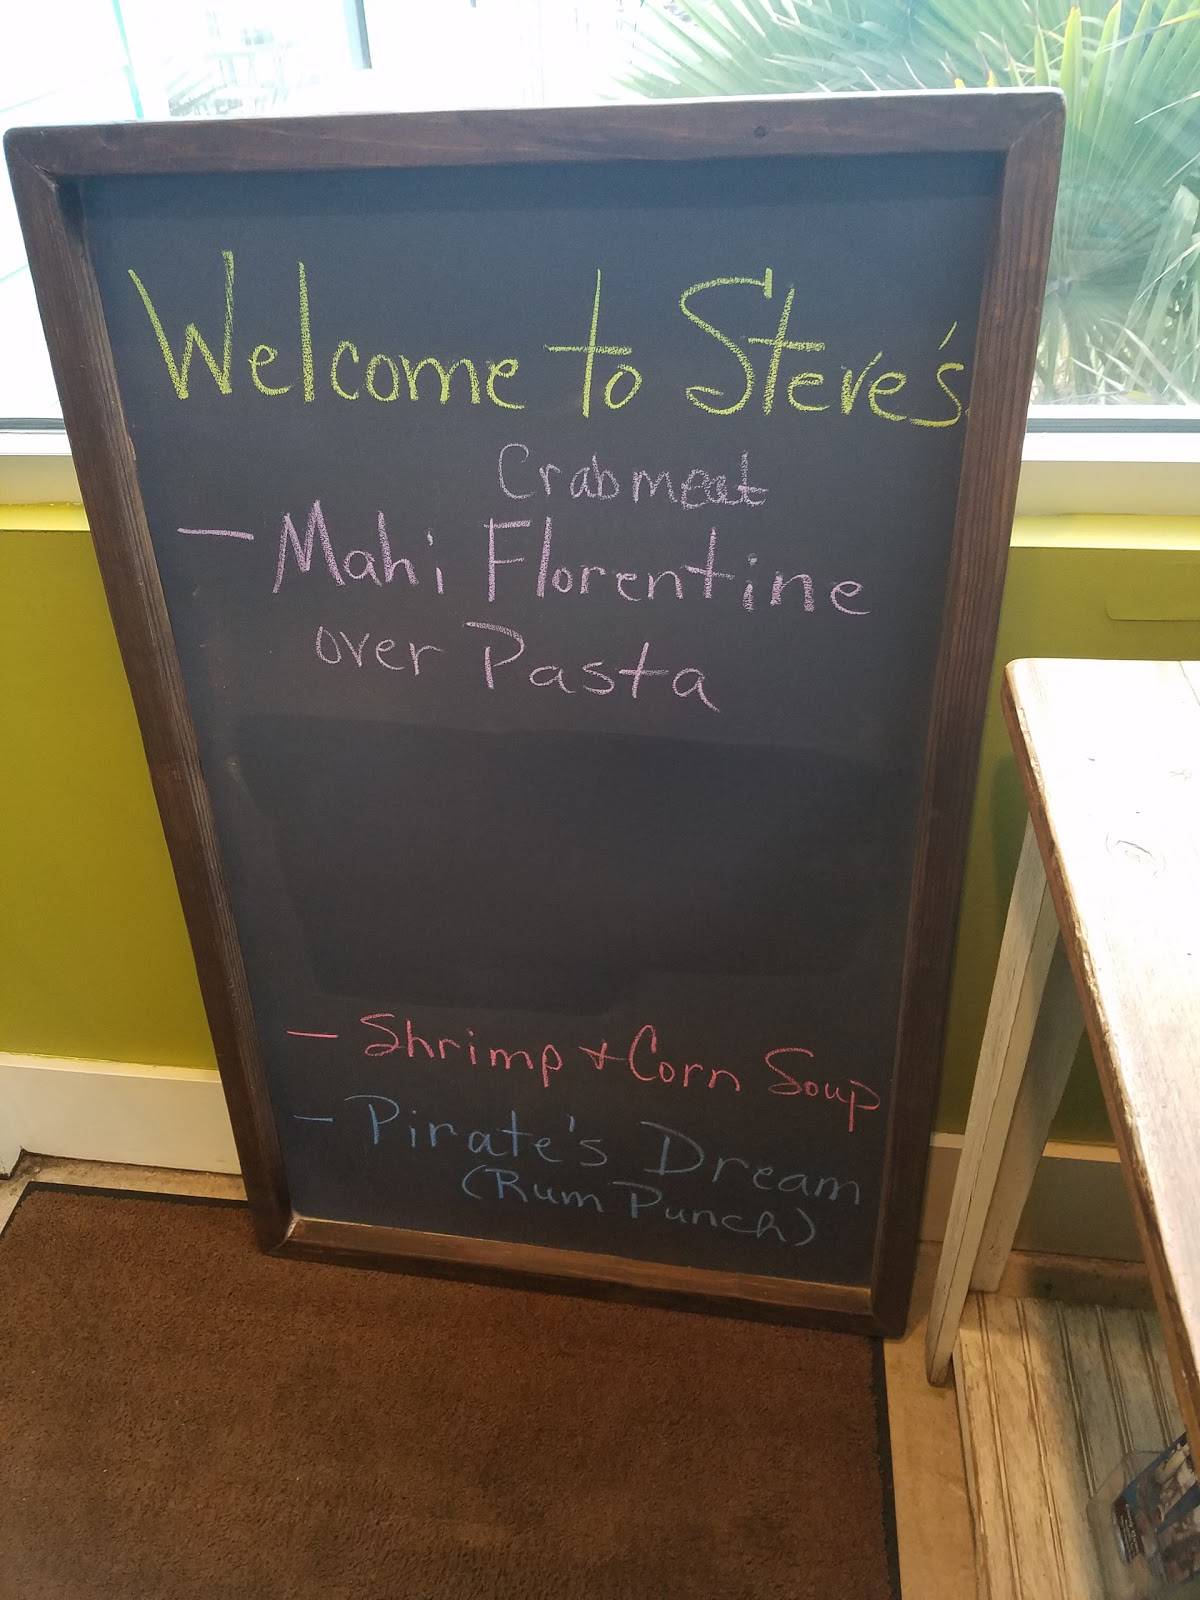 Welcome to Steve's
Crabmeat
- Mahi Florentine
over Pasta
- Shrimp & Corn Soup
- Pirate's Dream
(Rum Punch)